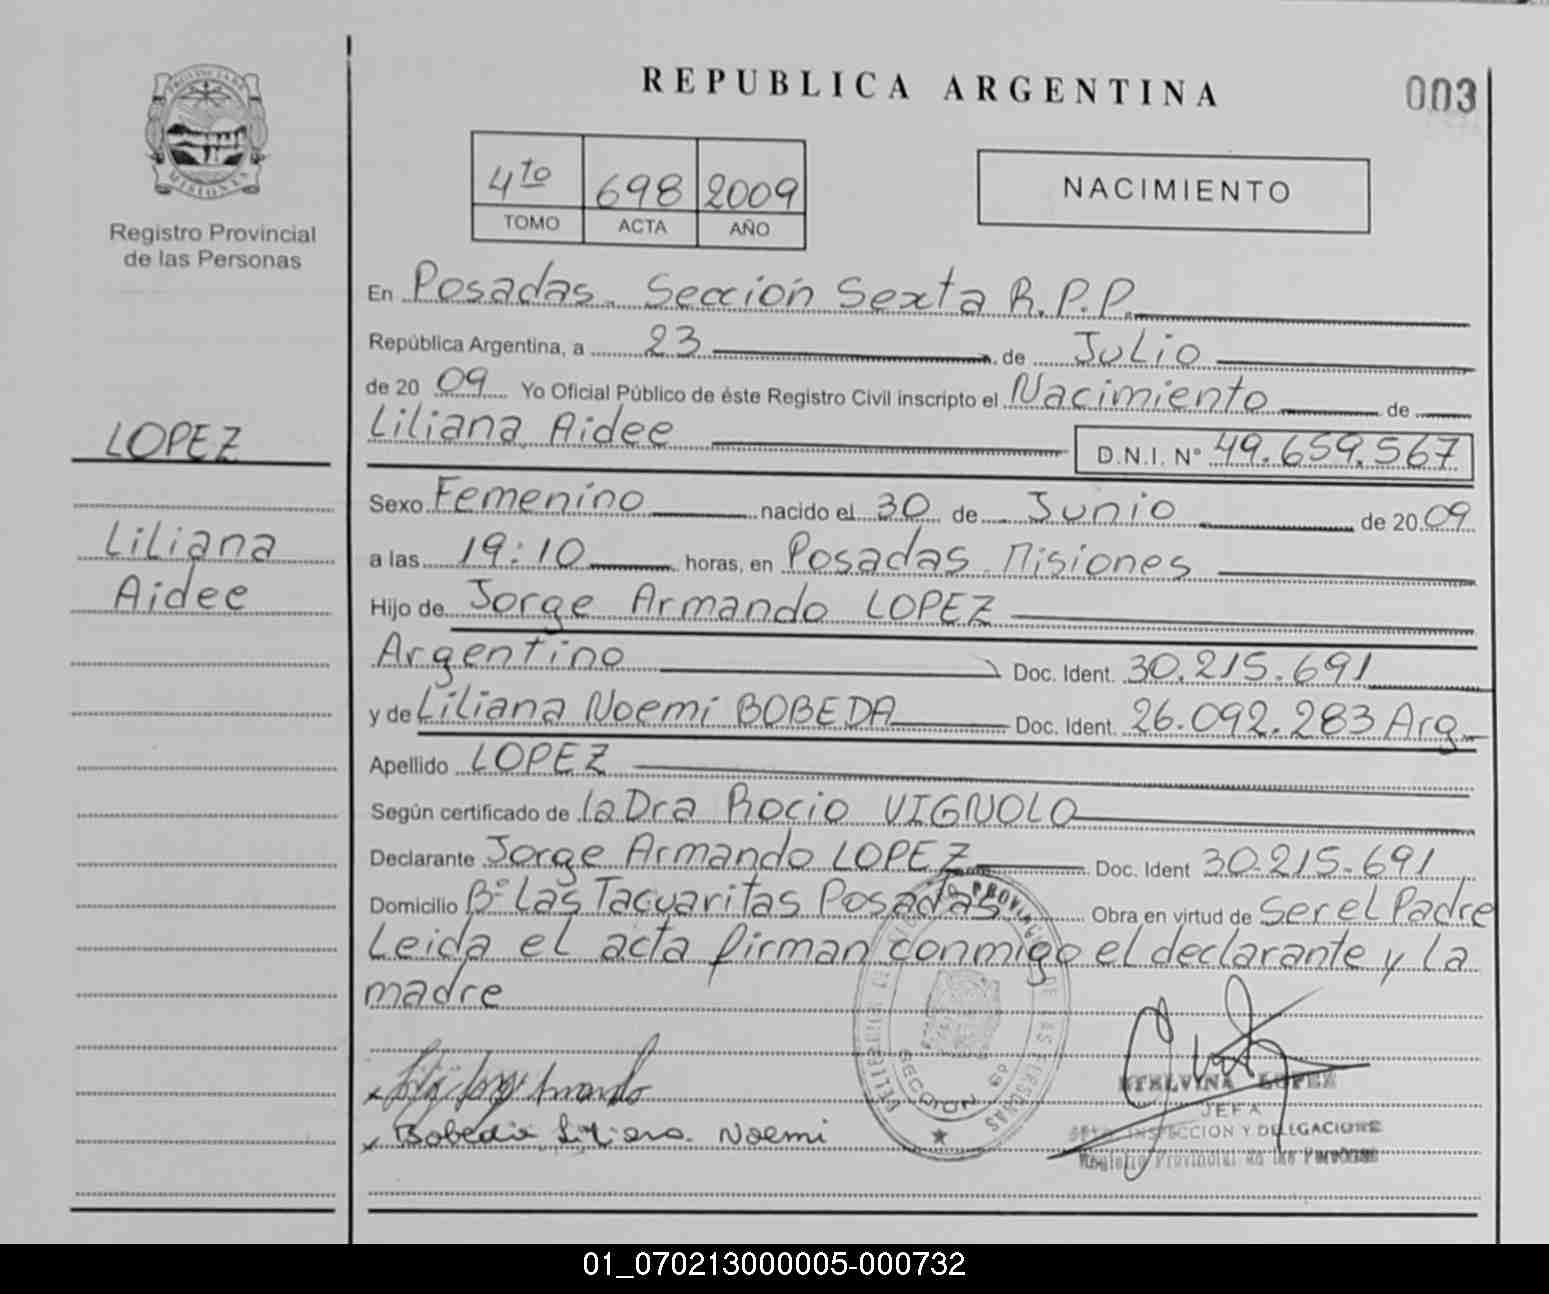 REPUBLICA ARGENTINA
003
PROVINCIA DE
MISIONES
Registro Provincial
de las Personas
4to 698 2009
TOMO ACTA AÑO
NACIMIENTO
En Posadas. Sección Sexta R.P.P.
República Argentina, a 23 de Julio
de 2009 Yo Oficial Público de éste Registro Civil inscripto el Nacimiento de
Liliana Aidee D.N.I. N° 49.659.567
LOPEZ
Liliana
Aidee
Sexo Femenino nacido el 30 de Junio de 2009
a las 19:10 horas, en Posadas Misiones
Hijo de Jorge Armando LOPEZ
Argentino Doc. Ident. 30.215.691
y de Liliana Noemi BOBEDA Doc. Ident. 26.092.283 Arg.
Apellido LOPEZ
Según certificado de la Dra Rocio VIGNOLO
Declarante Jorge Armando LOPEZ Doc. Ident 30.215.691
Domicilio B° Las Tacuaritas Posadas Obra en virtud de Ser el Padre
Leida el acta firman conmigo el declarante y la
madre
Jorge Armando
Bobeda Liliana Noemi
SECCION 6ª
LOPEZ
JEFA
INSPECCION Y DELEGACIONES
Registro Provincial de las Personas
01_070213000005-000732